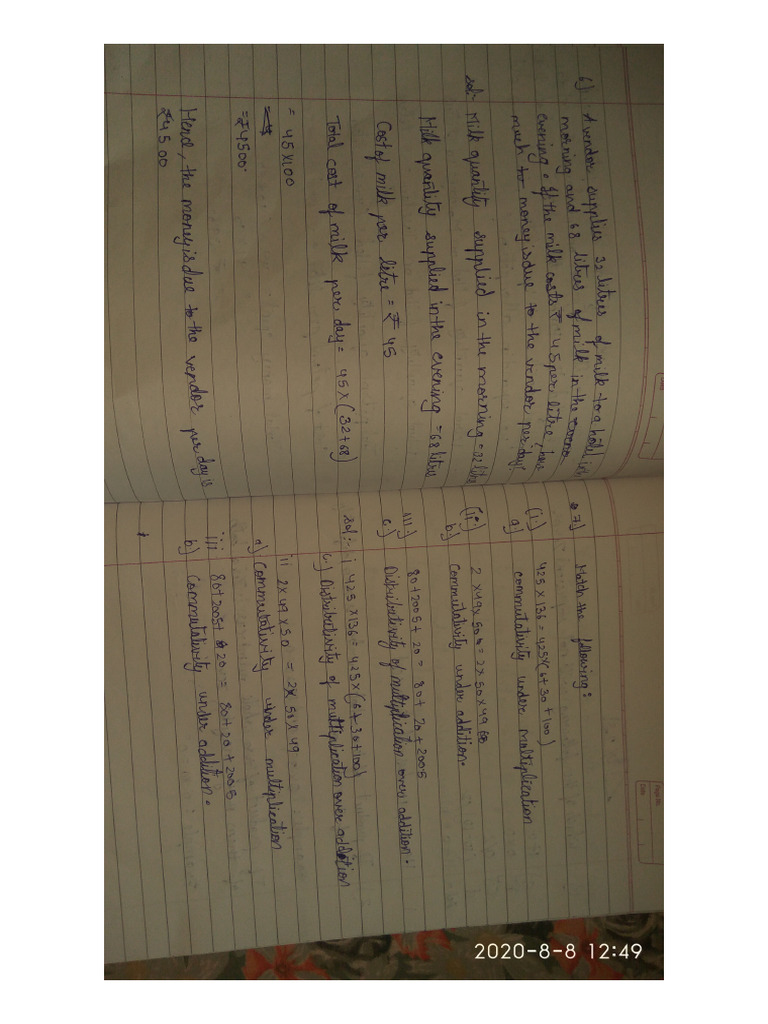 6) A vendor supplies 32 litres of milk to a hotel in
morning and 68 litres of milk in the
evening. If the milk costs ₹ 45 per litre, how
much to money is due to the vendor per day?
sol:- Milk quantity supplied in the morning = 32 litre
Milk quantity supplied in the evening = 68 litres
Cost of milk per litre = ₹ 45
Total cost of milk per day = 45 × (32+68)
= 45×100
= ₹4500.
Hence, the money is due to the vendor per day is
₹4500
7) Match the following:
(i) 425 × 136 = 425×(6+30+100)
a) commutativity under multiplication
(ii) 2 × 49 × 50 = 2 × 50 × 49
b) Commutativity under addition.
iii) 80+2005+20 = 80+20+2005
c.) Distributivity of multiplication over addition.
Sol:- i 425 × 136 = 425 × (6+30+100)
c.) Distributivity of multiplication over addition
ii 2 × 49 × 50 = 2 × 50 × 49
a) Commutativity under multiplication
iii 80+2005+20 = 80+20+2005
b) Commutativity under addition.
Date
Date
2020-8-8 12:49